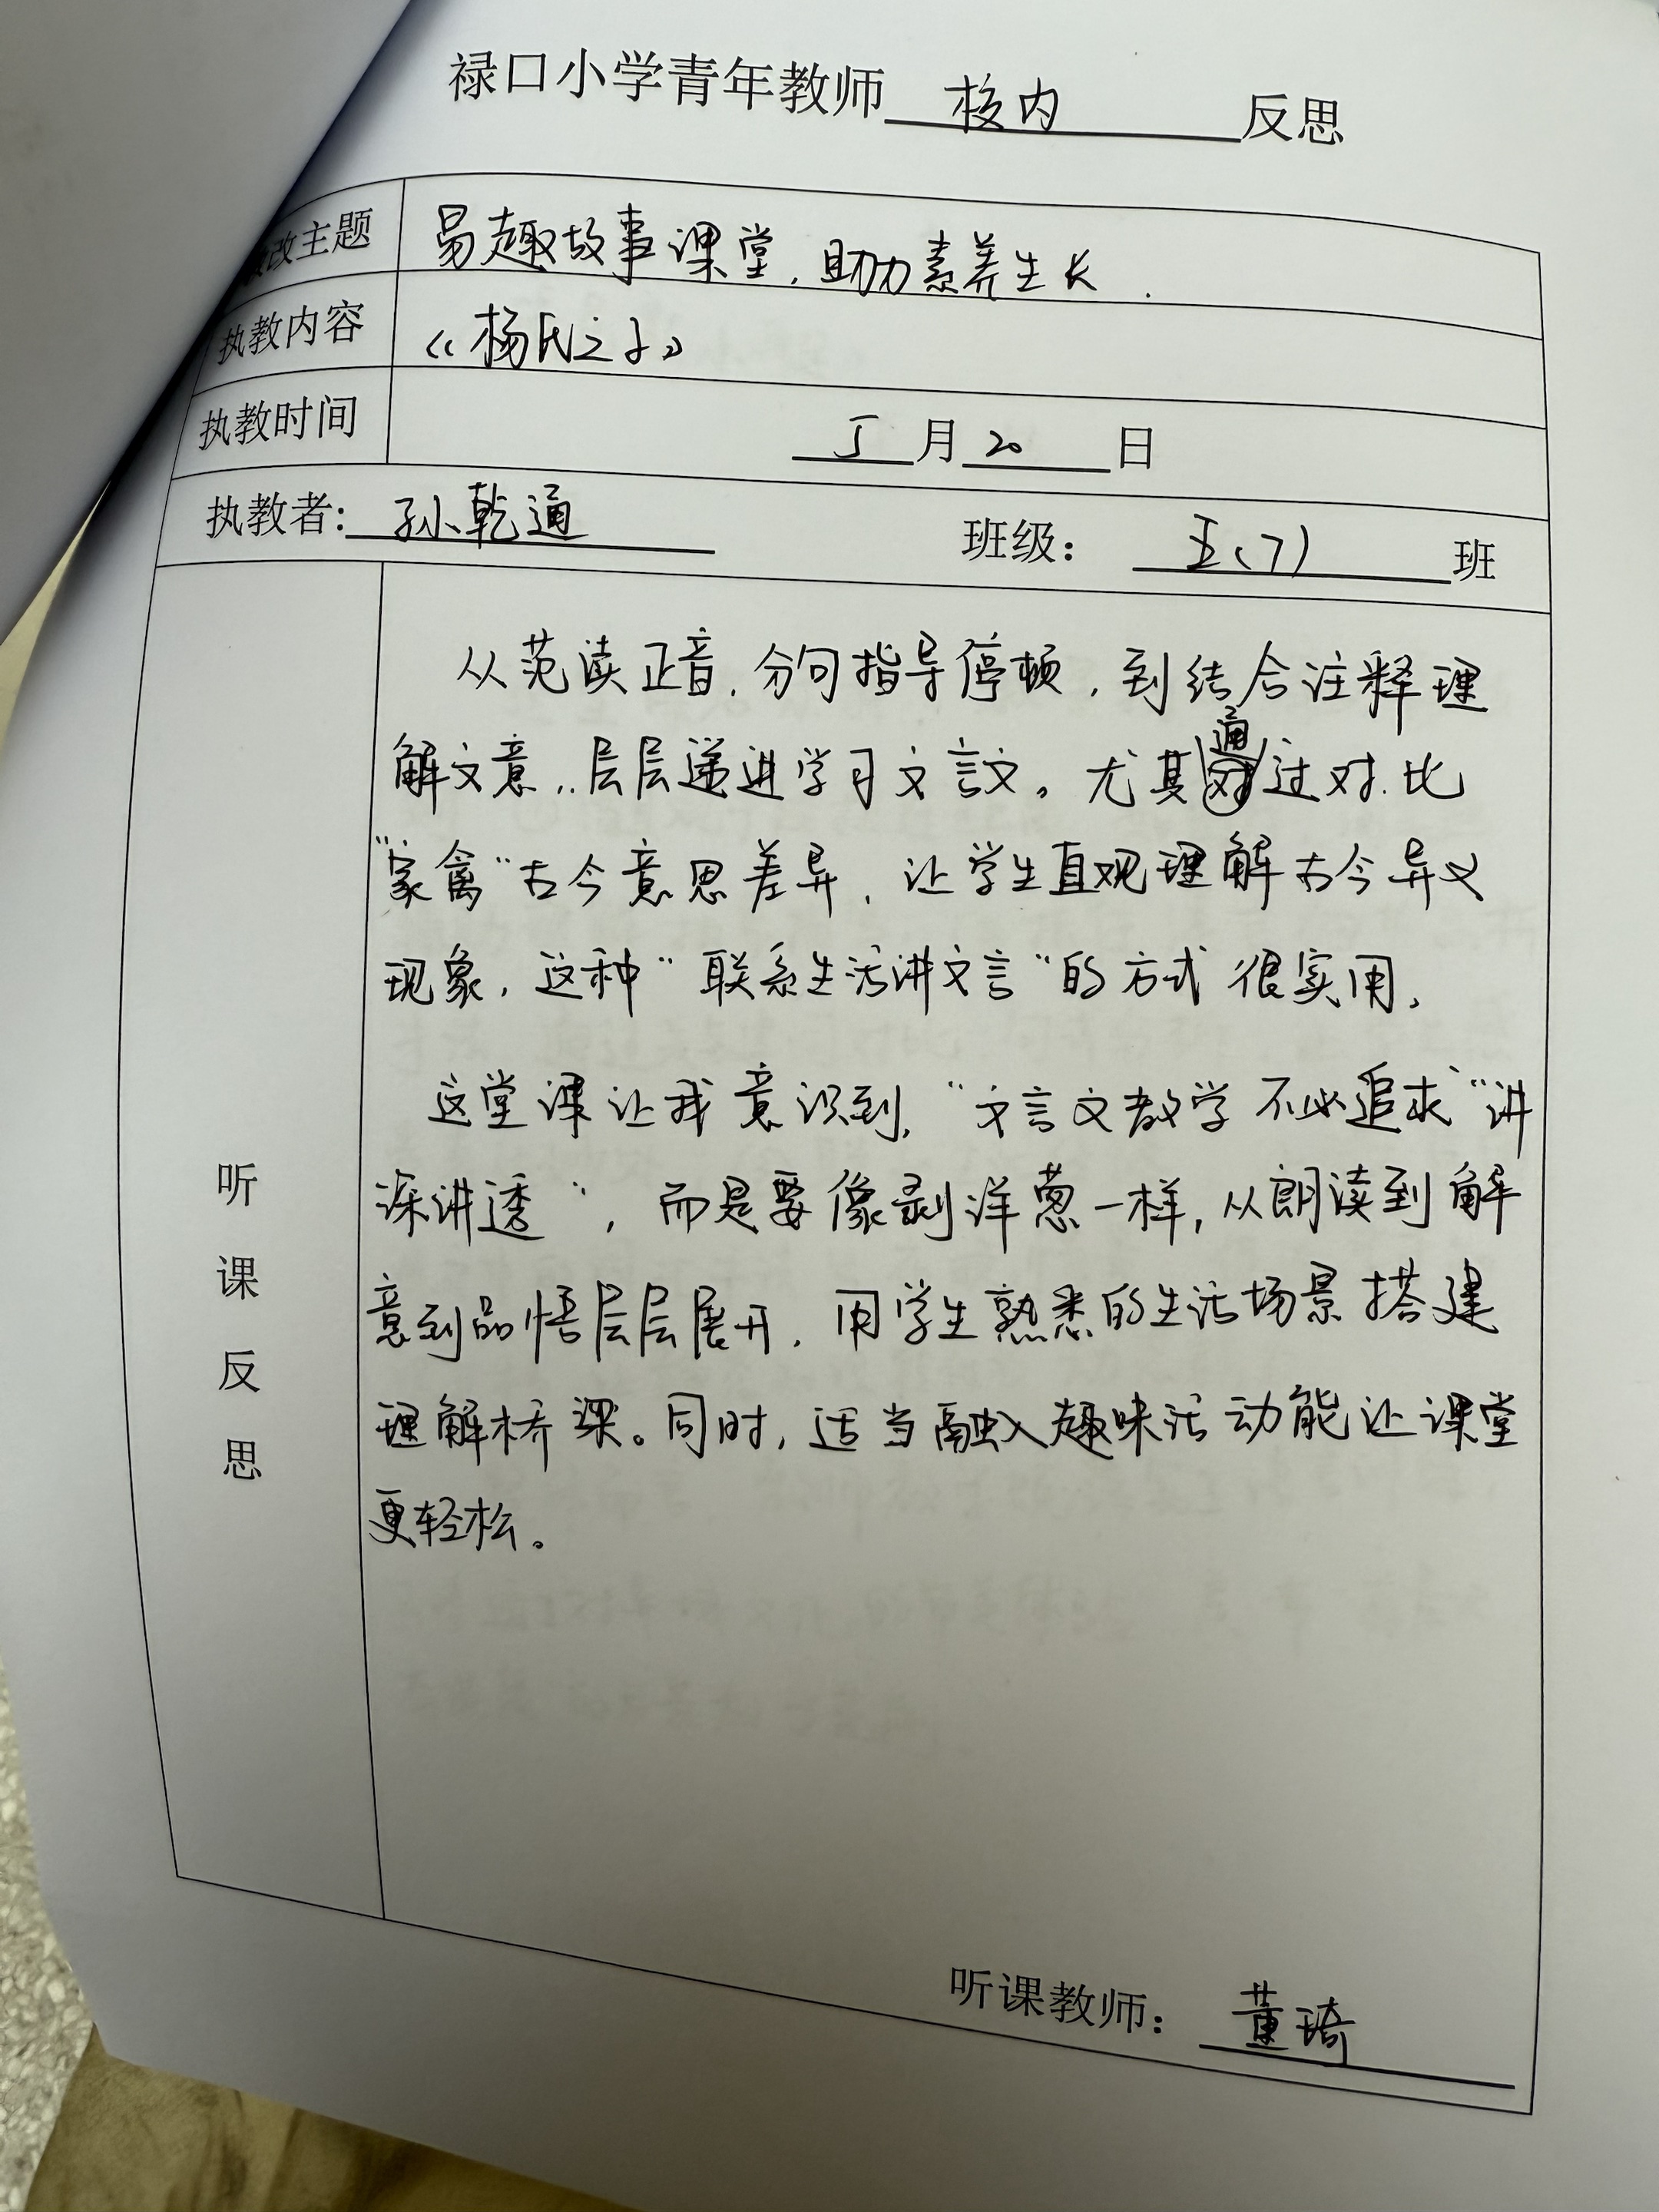 禄口小学青年教师 校内 反思
改主题 易趣故事课堂,助力素养生长.
执教内容 《杨氏之子》
执教时间 5月20日
执教者: 孙乾通 班级: 五(7)班
从范读正音,分句指导停顿,到结合注释理
解文意,层层递进学习文言文。尤其通过对比
“家禽”古今意思差异,让学生直观理解古今异义
现象,这种“联系生活讲文言”的方式很实用。
这堂课让我意识到,“文言文教学不必追求“讲
深讲透”,而是要像剥洋葱一样,从朗读到解
意到品悟层层展开,用学生熟悉的生活场景搭建
理解桥梁。同时,适当融入趣味活动能让课堂
更轻松。
听
课
反
思
听课教师: 董琦